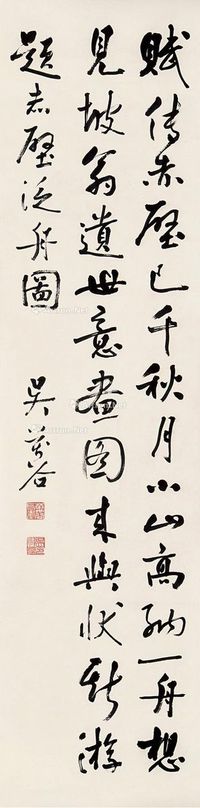 賦傳赤壁已千秋月小山高納一舟想
見坡翁遺世意畫圖來與狀斯游
題赤壁泛舟圖
吳萬谷